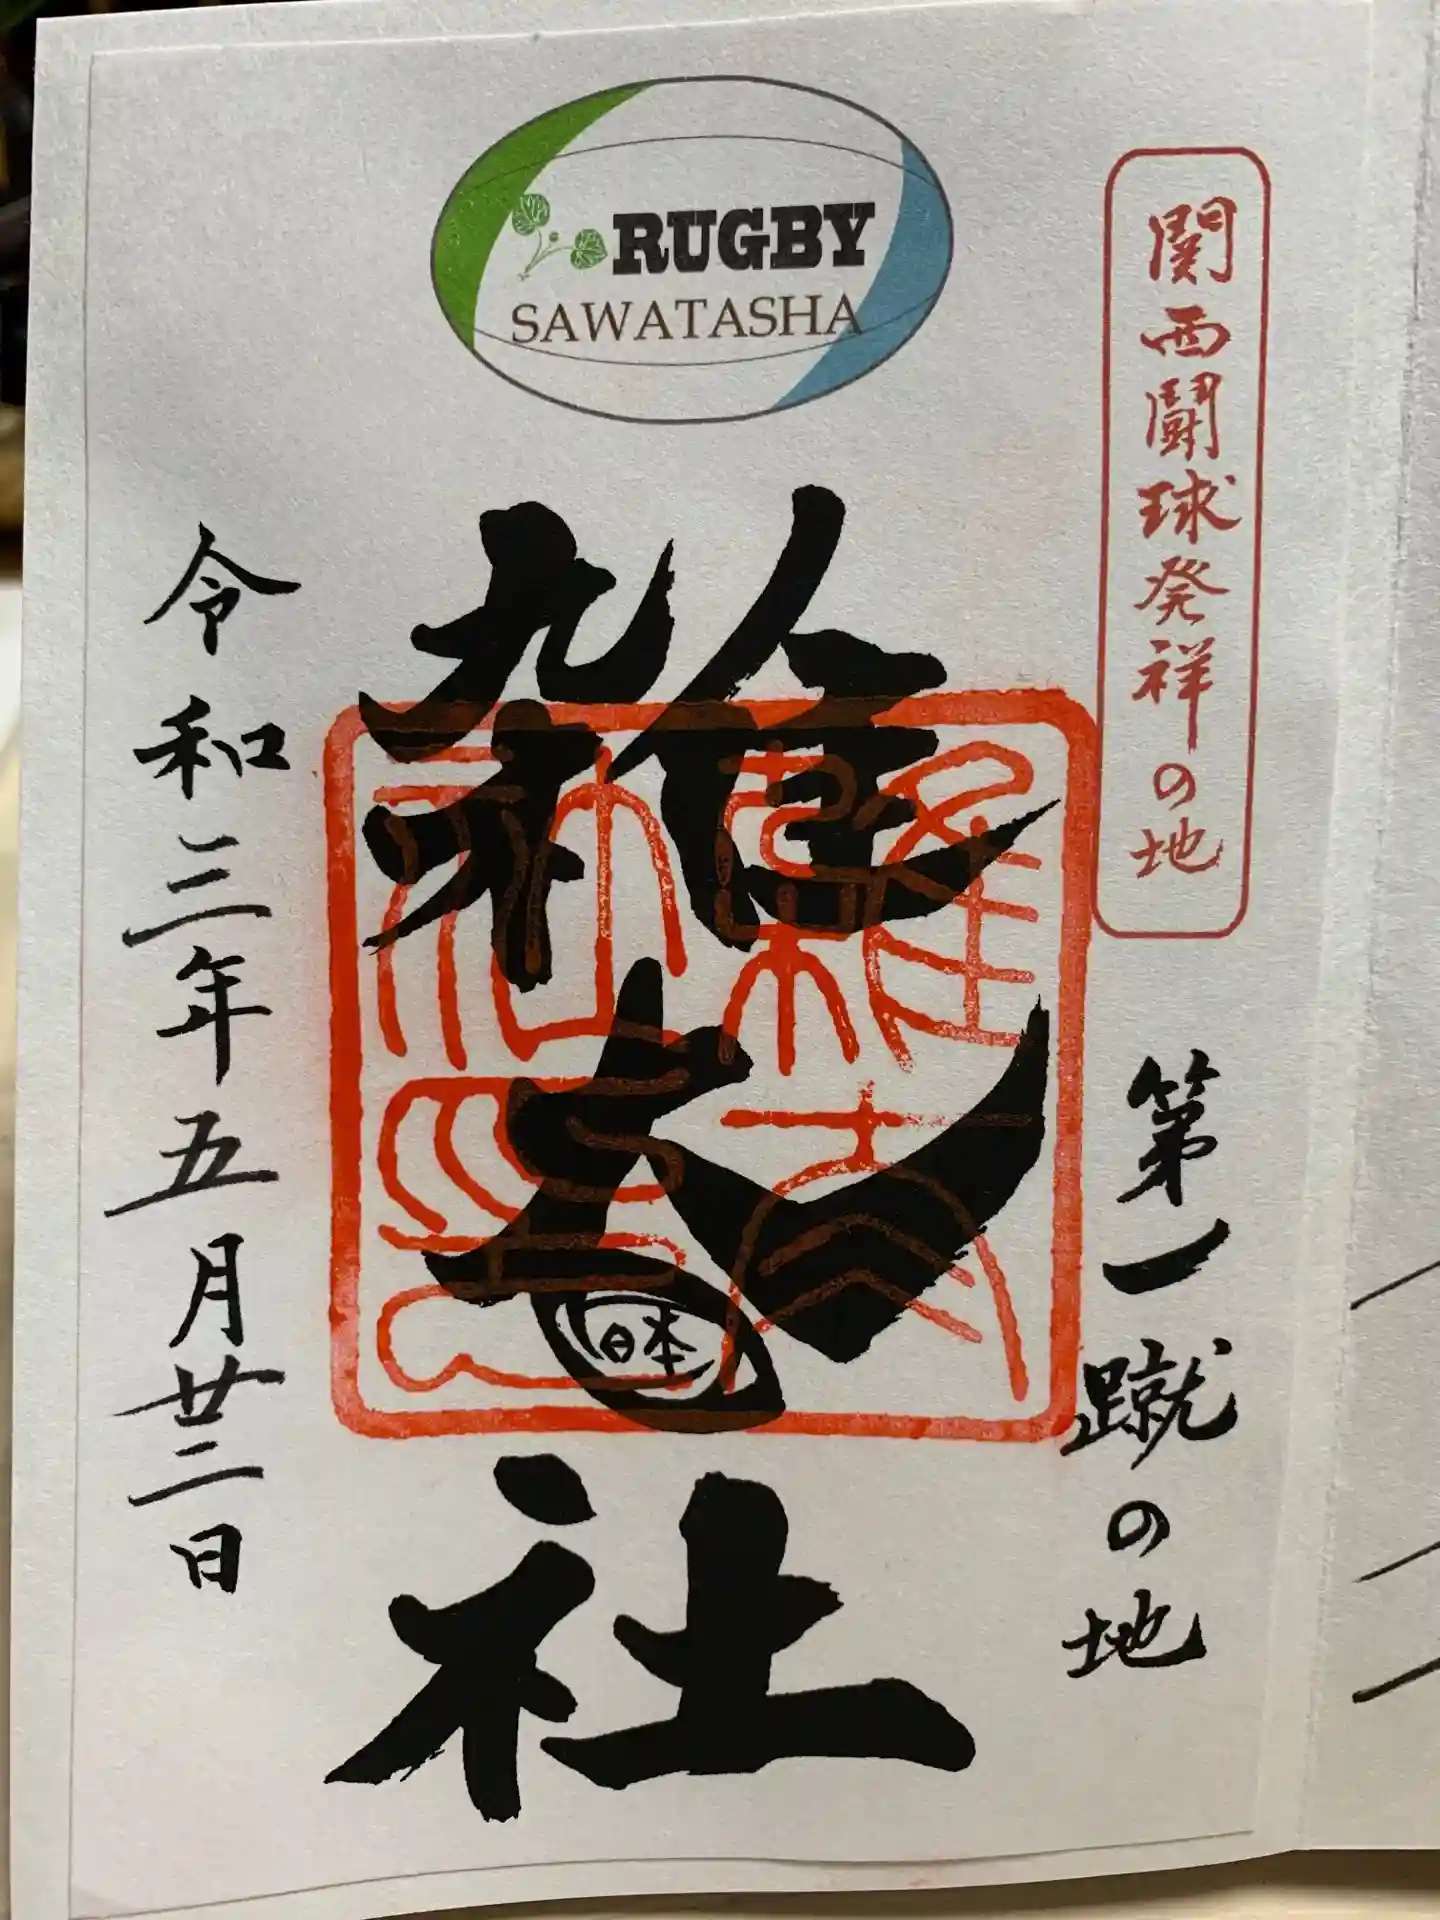 RUGBY
SAWATASHA
関西闘球発祥の地
第一蹴の地
雑太社
日本
雜太社印
令和三年五月廿三日